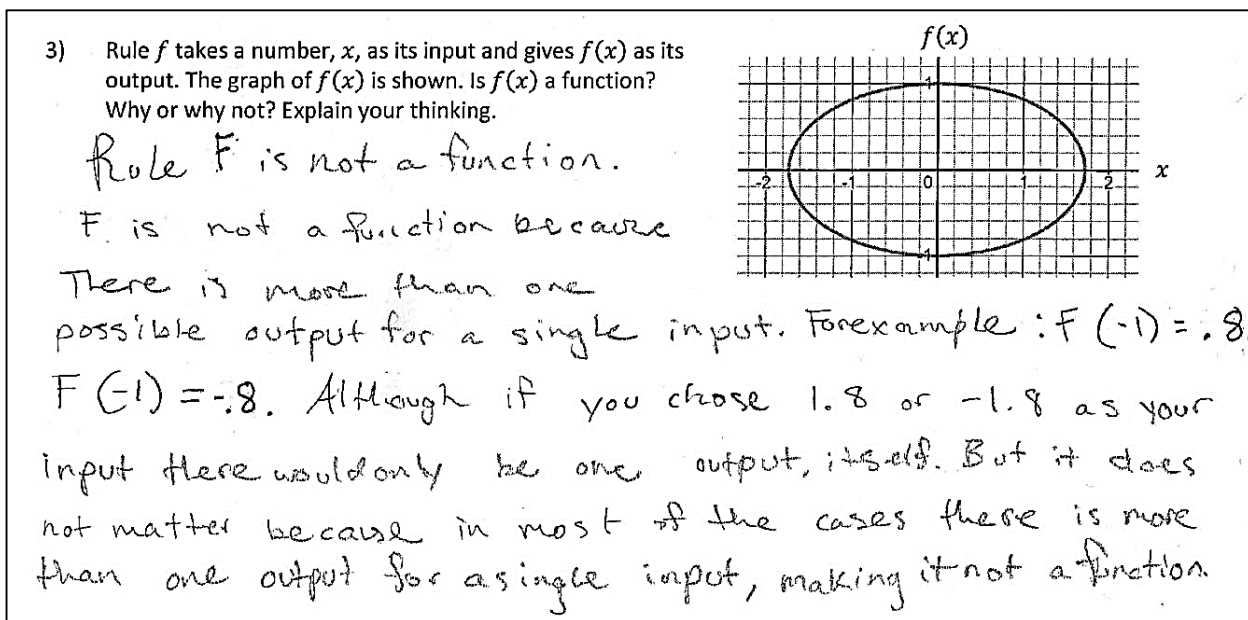 3) Rule f takes a number, x, as its input and gives f(x) as its
output. The graph of f(x) is shown. Is f(x) a function?
Why or why not? Explain your thinking.
f(x)
1
-2 -1 0 -1 2
x
-1
Rule F is not a function.
F is not a function because
There is more than one
possible output for a single input. Forexample : F (-1) = .8
F (-1) = -.8. Although if you chose 1.8 or -1.8 as your
input there would only be one output, itself. But it does
not matter because in most of the cases there is more
than one output for a single input, making it not a function.